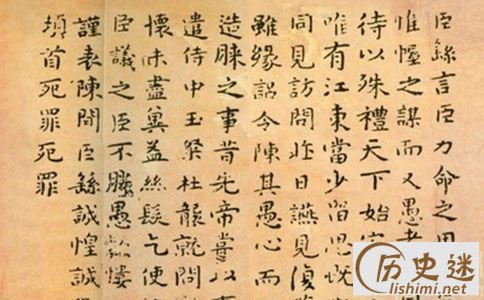 臣繇言臣力命之用
惟幄之謀而又愚耄
待以殊禮天下始
唯有江東當少留思既
同見訪問昨日讌見復
雖緣詔令陳其愚心而
造膝之事昔先帝嘗以
遣侍中王粲杜襲就問
懷未盡冀益絲髮乞使
臣議之臣不勝愚款慺
謹表陳聞臣繇誠惶誠
頓首死罪死罪
历史迷
lishimi.net